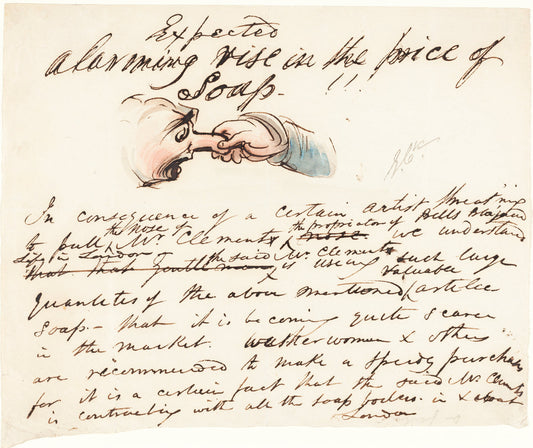 Expected
alarming rise in the price of
Soap. !!
In consequence of a certain artist threat'ning
to pull the nose of Mr Clement x the proprietor of Bells
Life in London we understand
that that the said Mr Clement x is using such large
quantites of the above mentioned valuable article
Soap - that it is becoming quite scarce
in the market. washerwomen & others
are recommended to make a speedy purchase
for it is a certain fact that the said Mr Clement
is contracting with all the soap boilers in & about
London